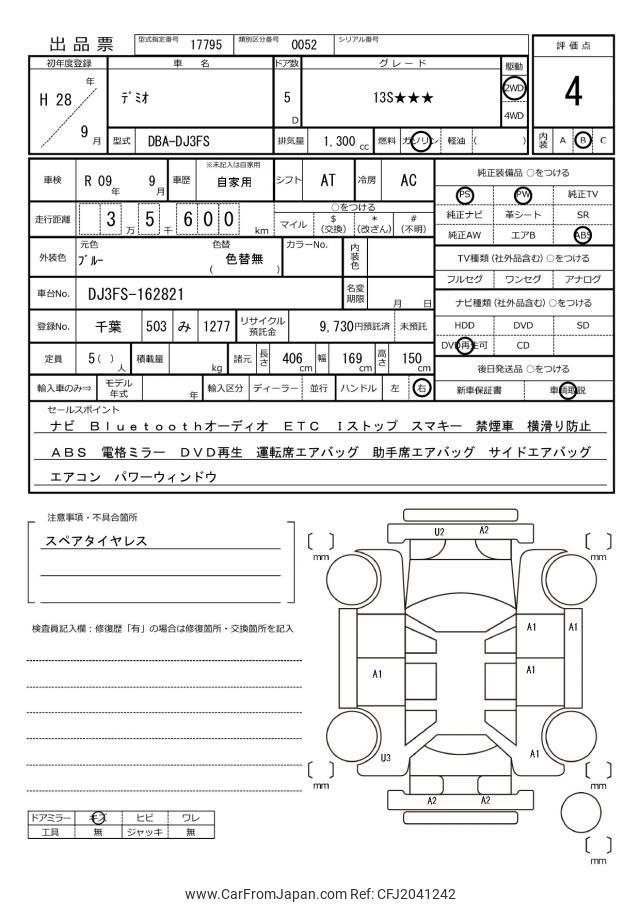 出品票 型式指定番号 17795 類別区分番号 0052 シリアル番号
初年度登録 車名 ドア数 グレード 駆動 評価点
H 28 年 9 月 デミオ 5 D 13S★★★ 2WD 4WD 4
型式 DBA-DJ3FS 排気量 1,300 cc 燃料 ガソリン 軽油 ( ) 内装 A B C
車検 R 09 年 9 月 車歴 ※未記入は自家用 自家用 シフト AT 冷房 AC 純正装備品 ○をつける
PS PW 純正TV
走行距離 3 万 5 千 6 0 0 km ○をつける
マイル $(交換) *(改ざん) #(不明)
純正ナビ 革シート SR
純正AW エアB ABS
外装色 元色 ブルー 色替 ( 色替無 ) カラーNo. 内装色
TV種類 (社外品含む) ○をつける
フルセグ ワンセグ アナログ
車台No. DJ3FS-162821 名変期限 月 日
ナビ種類 (社外品含む) ○をつける
登録No. 千葉 503 み 1277 リサイクル預託金 9,730円預託済 未預託
HDD DVD SD
DVD再生可 CD
定員 5 ( ) 人 積載量 kg 諸元 長さ 406 cm 幅 169 cm 高さ 150 cm
後日発送品 ○をつける
輸入車のみ⇒ モデル年式 年 輸入区分 ディーラー 並行 ハンドル 左 右
新車保証書 車輌取説
セールスポイント
ナビ Ｂｌｕｅｔｏｏｔｈオーディオ ＥＴＣ Ｉストップ スマキー 禁煙車 横滑り防止
ＡＢＳ 電格ミラー ＤＶＤ再生 運転席エアバッグ 助手席エアバッグ サイドエアバッグ
エアコン パワーウィンドウ
注意事項・不具合箇所
スペアタイヤレス
検査員記入欄：修復歴「有」の場合は修復箇所・交換箇所を記入
U2 A2
mm mm
A1 A1
A1 A1
U3 A1
mm mm
A2 A2
mm
ドアミラー キズ ヒビ ワレ
工具 無 ジャッキ 無
www.CarFromJapan.com Ref: CFJ2041242